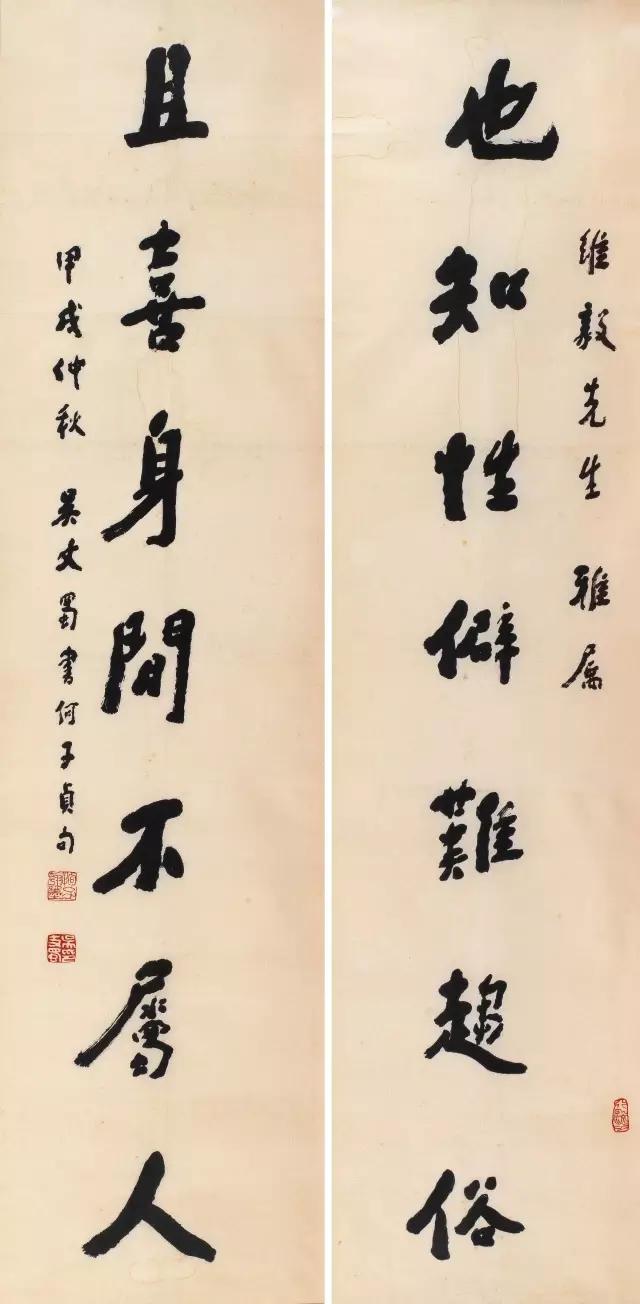 維毅先生 雅屬
也知性僻難趨俗
且喜身閒不屬人
甲戌仲秋 吴丈蜀書何子貞句